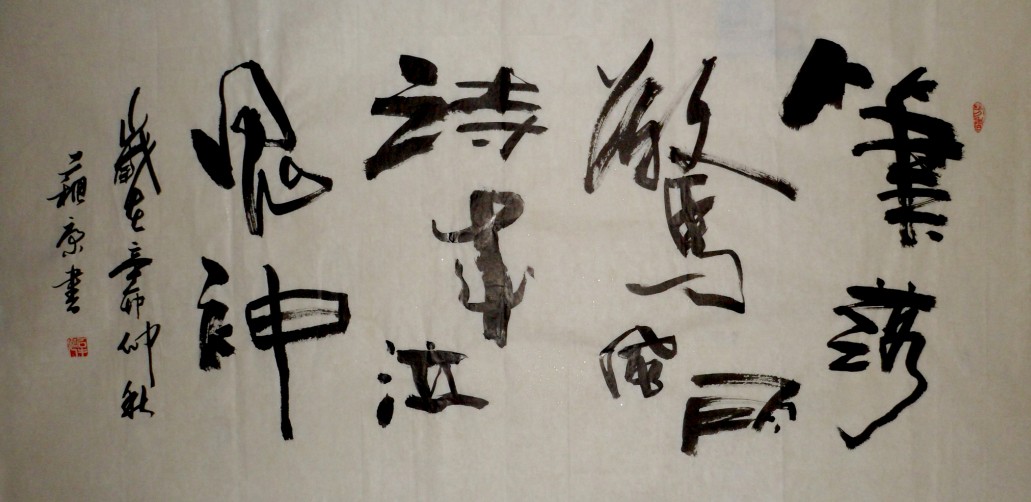 筆落
驚風雨
詩成泣
鬼神
歲在辛卯仲秋
書